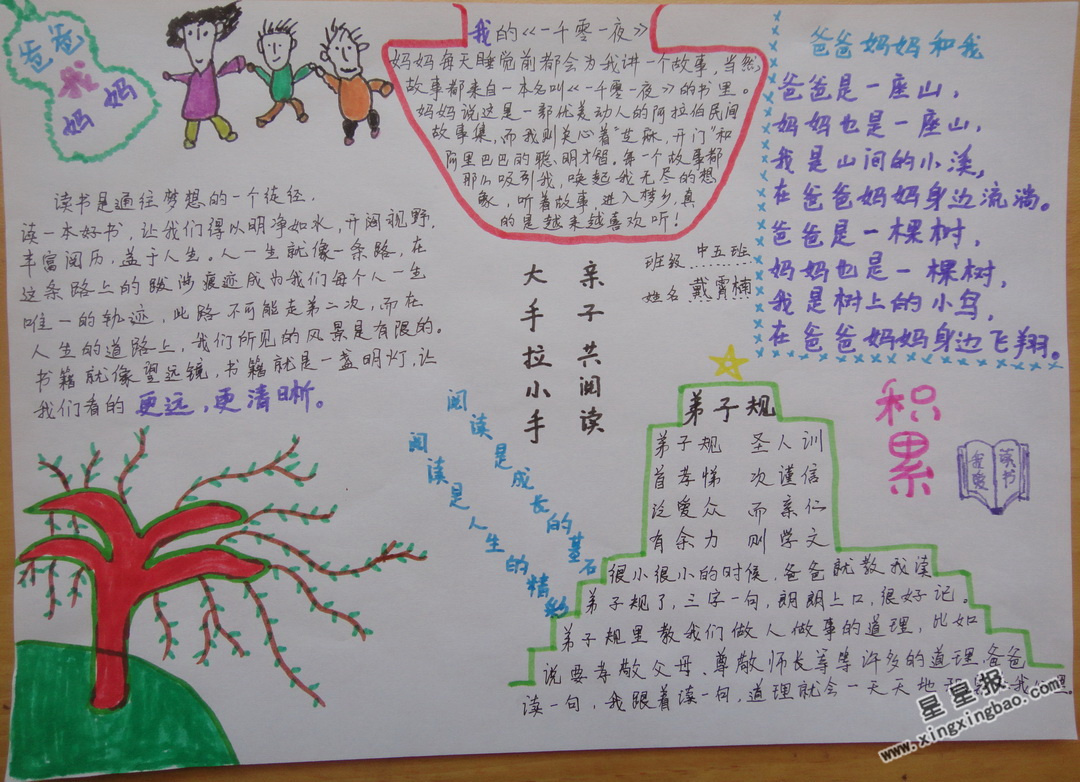 爸爸
我
妈妈
我的《一千零一夜》
妈妈每天睡觉前都会为我讲一个故事,当然,
故事都来自一本名叫《一千零一夜》的书里。
妈妈说这是一部优美动人的阿拉伯民间
故事集,而我则关心着"芝麻,开门"和
阿里巴巴的聪明才智。每一个故事都
那么吸引我,唤起我无尽的想
象,听着故事,进入梦乡,真
的是越来越喜欢听!
爸爸妈妈和我
爸爸是一座山,
妈妈也是一座山,
我是山间的小溪,
在爸爸妈妈身边流淌。
爸爸是一棵树,
妈妈也是一棵树,
我是树上的小鸟,
在爸爸妈妈身边飞翔。
读书是通往梦想的一个徒径,
读一本好书,让我们得以明净如水,开阔视野,
丰富阅历,益于人生。人一生就像一条路,在
这条路上的跋涉痕迹成为我们每个人一生
唯一的轨迹,此路不可能走第二次,而在
人生的道路上,我们所见的风景是有限的。
书籍就像望远镜,书籍就是一盏明灯,让
我们看的更远,更清晰。
班级 中五班
姓名 戴霄楠
亲子共阅读
大手拉小手
阅读是成长的基石
阅读是人生的精彩
积累
我爱读书
弟子规
弟子规 圣人训
首孝悌 次谨信
泛爱众 而亲仁
有余力 则学文
很小很小的时候,爸爸就教我读
弟子规了,三字一句,朗朗上口,很好记。
弟子规里教我们做人做事的道理,比如
说要孝敬父母、尊敬师长等等许多的道理。爸爸
读一句,我跟着读一句,道理就会一天天地
星星报
www.xingxingbao.com